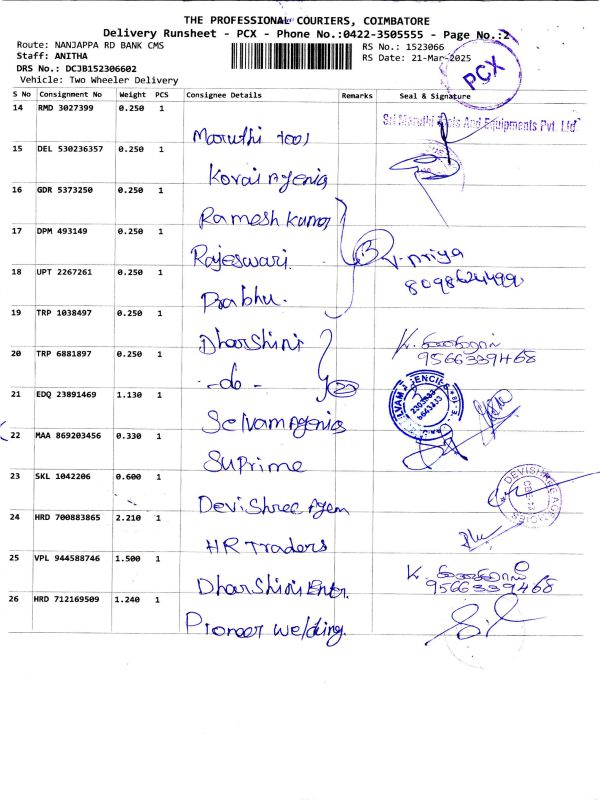 THE PROFESSIONAL COURIERS, COIMBATORE
Delivery Runsheet - PCX - Phone No.:0422-3505555 - Page No.:2
Route: NANJAPPA RD BANK CMS
RS No.: 1523066
Staff: ANITHA
RS Date: 21-Mar-2025
DRS No.: DCJB152306602
Vehicle: Two Wheeler Delivery
PCX
S No Consignment No Weight PCS Consignee Details Remarks Seal & Signature
14 RMD 3027399 0.250 1
Maruthi tool
Sri Maruthi Tools And Equipments Pvt. Ltd.
15 DEL 530236357 0.250 1
Kovai Agenig
16 GDR 5373250 0.250 1
Ramesh Kumar
17 DPM 493149 0.250 1
Rajeswari.
3
V. Priya
8098624499
18 UPT 2267261 0.250 1
Prabhu.
19 TRP 1038497 0.250 1
Dharshini
K.
9566339468
20 TRP 6881897 0.250 1
-do-
2
21 EDQ 23891469 1.130 1
Selvam Agenig
22 MAA 869203456 0.330 1
Suprime
23 SKL 1042206 0.600 1
Devi Shree Agen
DEVISHREE AGENCIES
24 HRD 700883865 2.210 1
HR Traders
25 VPL 944588746 1.500 1
Dharshini Enter.
K.
9566339468
26 HRD 712169509 1.240 1
Pioneer welding.